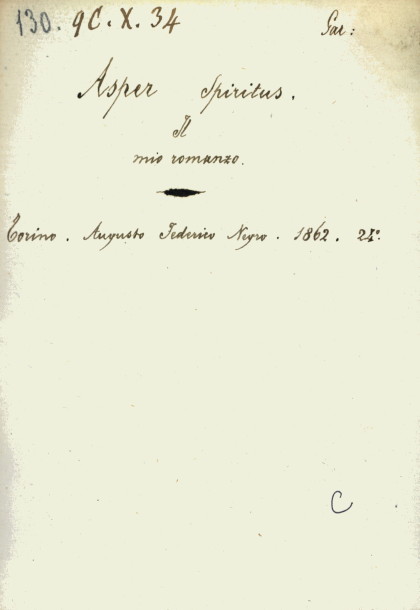 130. 9C.X.34 Gar:
Asper Spiritus.
Il
mio romanzo.
Torino. Augusto Federico Negro. 1862. 24°.
C